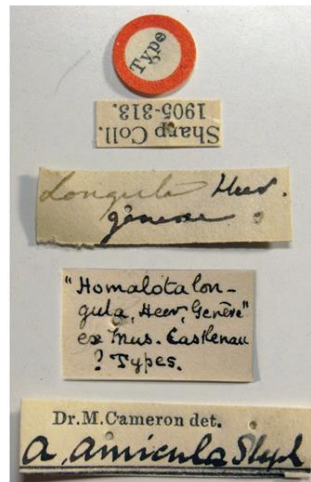 Type
Sharp Coll.
1905-313.
Longula Heer.
genève
"Homalota lon-
gula, Heer, Genève"
ex Mus.
? Types.
Dr.M.Cameron det.
A. amicula Steph